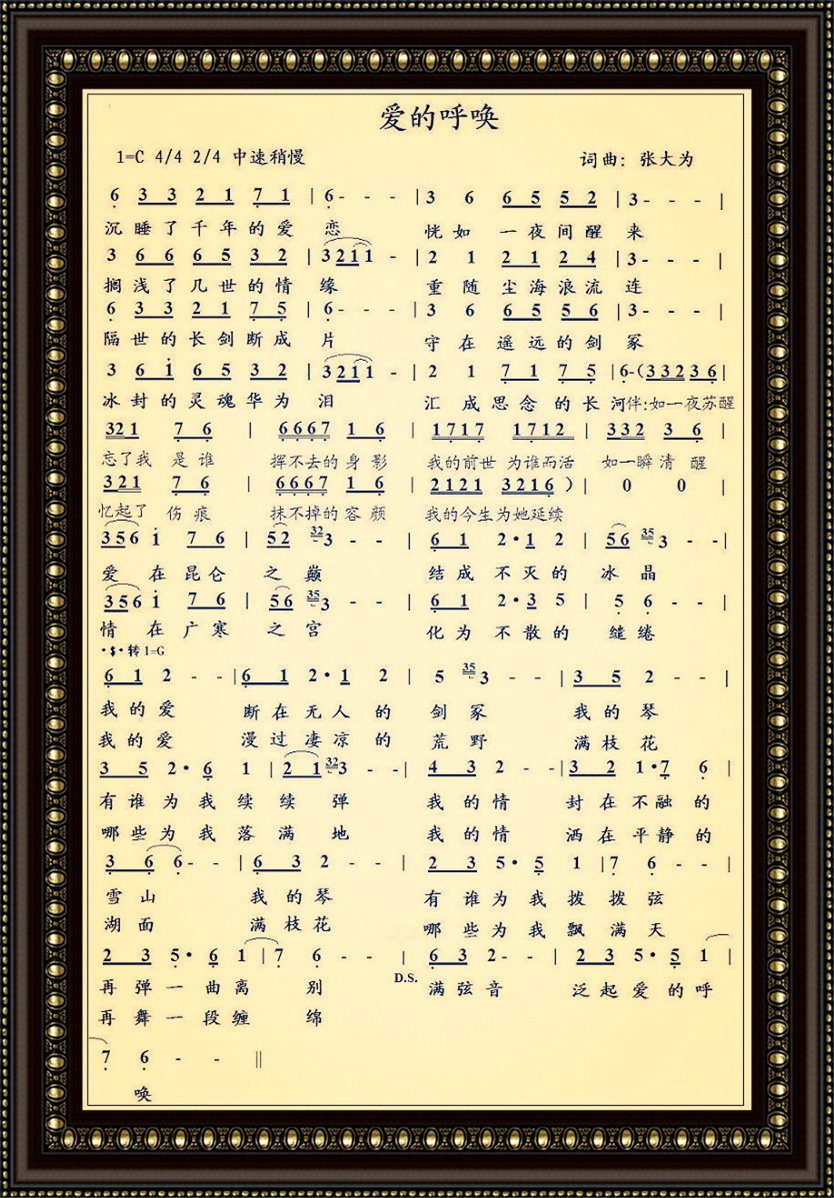 爱的呼唤
1=C 4/4 2/4 中速稍慢 词曲：张大为
6 3 3 2 1 7 1 | 6 - - - | 3 6 6 5 5 2 | 3 - - - |
沉睡了千年的爱恋 恍如一夜间醒来
3 6 6 6 5 3 2 | 3 2 1 1 - | 2 1 2 1 2 4 | 3 - - - |
搁浅了几世的情缘 重随尘海浪流连
6 3 3 2 1 7 5 | 6 - - - | 3 6 6 5 5 6 | 3 - - - |
隔世的长剑断成片 守在遥远的剑冢
3 6 i 6 5 3 2 | 3 2 1 1 - | 2 1 7 1 7 5 | 6 - (3 3 2 3 6 |
冰封的灵魂华为泪 汇成思念的长河 伴:如一夜苏醒
3 2 1 7 6 | 6 6 6 7 1 6 | 1 7 1 7 1 7 1 2 | 3 3 2 3 6 |
忘了我是谁 挥不去的身影 我的前世为谁而活 如一瞬清醒
3 2 1 7 6 | 6 6 6 7 1 6 | 2 1 2 1 3 2 1 6 ) | 0 0 |
忆起了伤痕 抹不掉的容颜 我的今生为她延续
3 5 6 i 7 6 | 5 2 32 3 - - | 6 1 2 · 1 2 | 5 6 35 3 - - |
爱在昆仑之巅 结成不灭的冰晶
3 5 6 i 7 6 | 5 6 35 3 - - | 6 1 2 · 3 5 | 5 6 - - |
情在广寒之宫 化为不散的缱绻
·$·转1=G
6 1 2 - - | 6 1 2 · 1 2 | 5 35 3 - - | 3 5 2 - - |
我的爱 断在无人的剑冢 我的琴
我的爱 漫过凄凉的荒野 满枝花
3 5 2 · 6 1 | 2 1 32 3 - - | 4 3 2 - - | 3 2 1 · 7 6 |
有谁为我续续弹 我的情 封在不融的
哪些为我落满地 我的情 洒在平静的
3 6 6 - - | 6 3 2 - - | 2 3 5 · 5 1 | 7 6 - - |
雪山 我的琴 有谁为我拨拨弦
湖面 满枝花 哪些为我飘满天
2 3 5 · 6 1 | 7 6 - - | 6 3 2 - - | 2 3 5 · 5 1 |
D.S.
再弹一曲离别 满弦音 泛起爱的呼
再舞一段缠绵
7 6 - - ||
唤